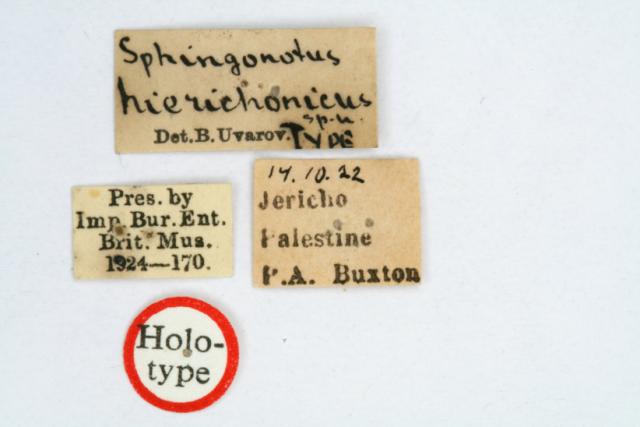 Sphingonotus
hierichonicus
sp. n.
Det. B. Uvarov. TYPE
Pres. by
Imp. Bur. Ent.
Brit. Mus.
1924—170.
14.10.22
Jericho
Palestine
P.A. Buxton
Holo-
type